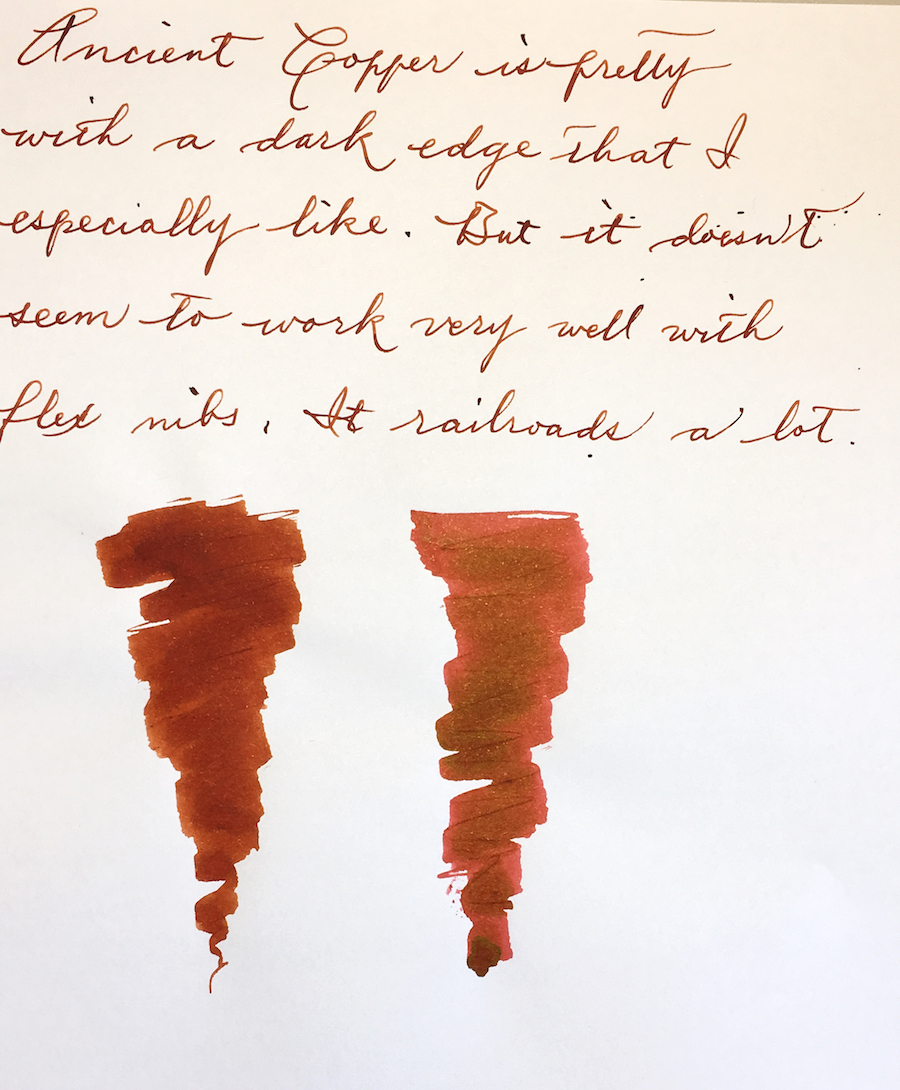 Ancient Copper is pretty
with a dark edge that I
especially like. But it doesn't
seem to work very well with
flex nibs. It railroads a lot.